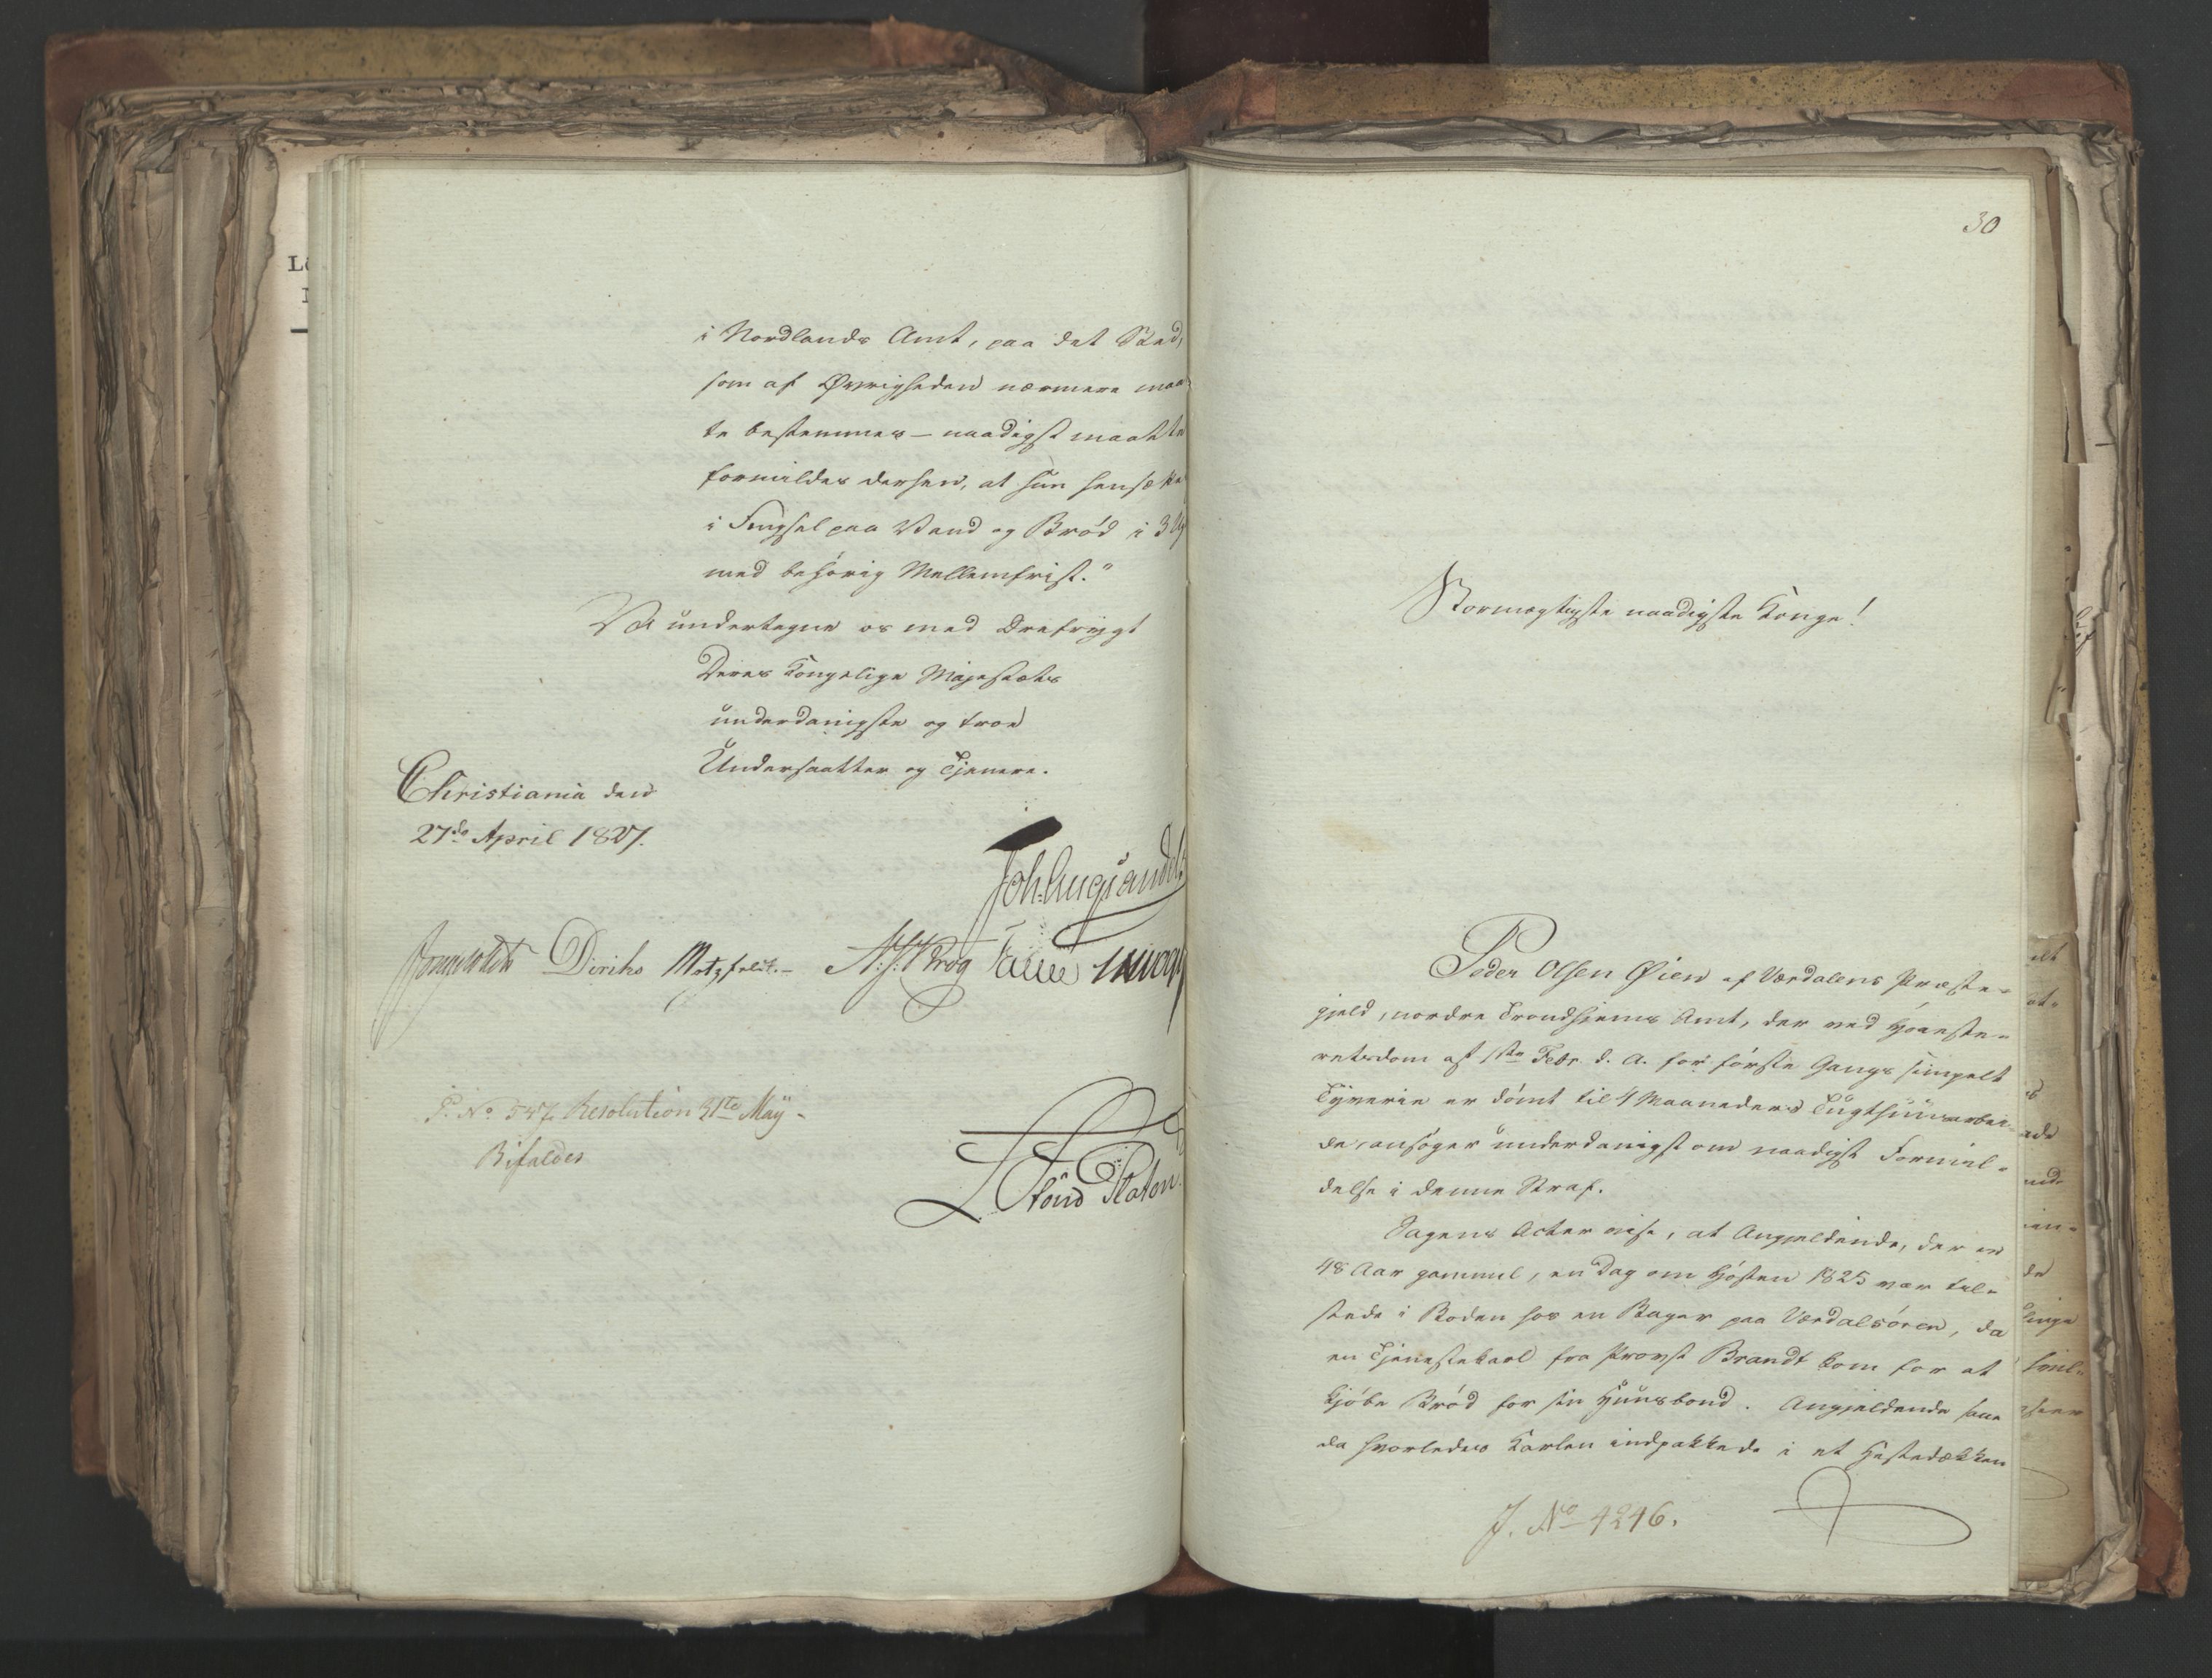 i Nordlands Amt, paa det Sted,
som af Øvrigheden nærmere maa
te bestemmes – naadigst maatte
formildes derhen, at hun hensættes
i Fengsel paa Vand og Brød i 3
med behørig Mellemfrist."
Vi undertegne os med Ærefrygt
Deres Kongelige Majestæts
underdanigste og troe
Undersaatter og Tjenere.
Christiania den
27de April 1827.
Joh. Aug. Sandels
Sommerhielm Diriks Motzfeldt.– A: S: Krog Fasting
P. No 547. Resolution 31te May –
Bifaldes
30
Stormægtigste naadigste Konge!
Peder Olsen Øien af Værdalens Præste-
gjeld, nordre Trondhjems Amt, der ved Høieste-
retsdom af 1ste Febr. d. A. for første Gangs simpelt
Tyverie er dømt til 4 Maaneders Tugthuusarbei-
de, ansøger underdanigst om naadigst Formil-
delse i denne Straf.
Sagens Acter vise, at Angjeldende, der er
48 Aar gammel, en Dag om Høsten 1825 var til-
stede i Boden hos en Bager paa Værdalsøren, da
en Tjenestekarl fra Provst Brandt kom for at
kjøbe Brød for sin Huusbond. Angjeldende saae
da hvorledes Karlen indpakkede i et Hestedækken
J. No 4246.